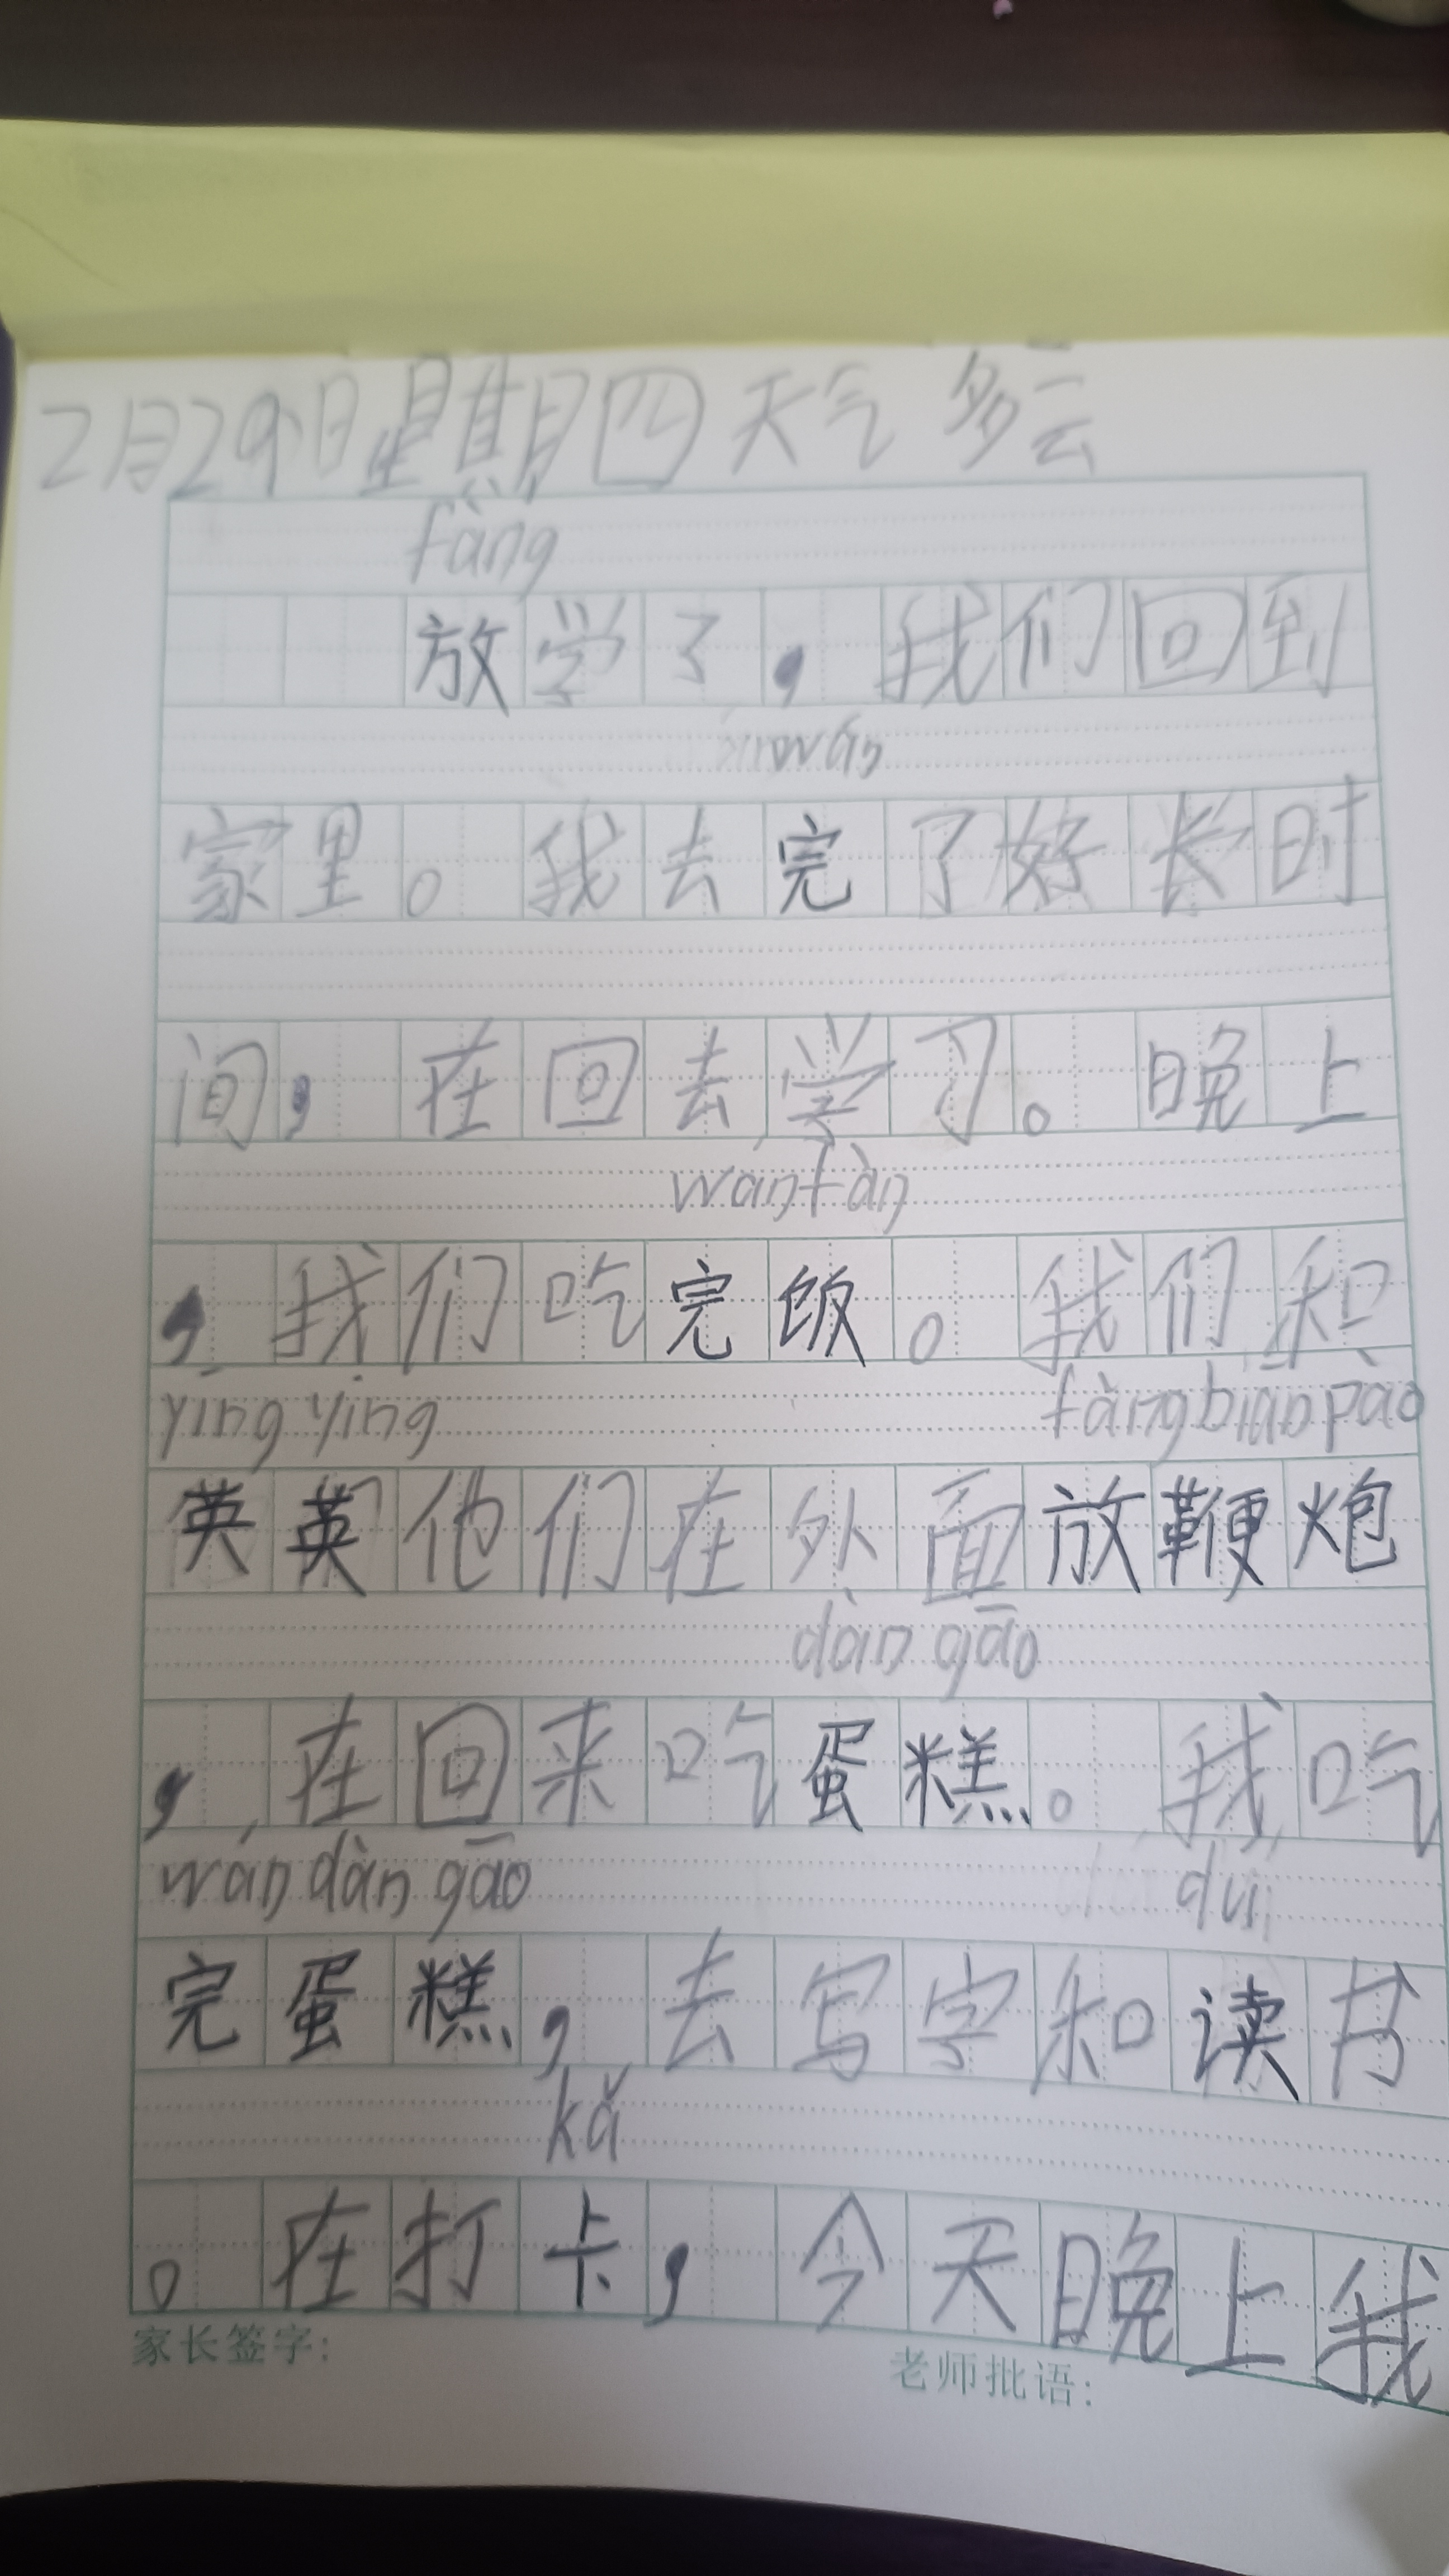 2月29日星期四 天气 多云
fàng
放学了，我们回到
wán
家里。我去完了好长时
间，在回去学习。晚上
wán fàn
，我们吃完饭。我们和
yīng yīng fàng biān pào
英英他们在外面放鞭炮
dàn gāo
，在回来吃蛋糕。我吃
wán dàn gāo dú
完蛋糕，去写字和读书
kǎ
。在打卡，今天晚上我
家长签字：
老师批语：